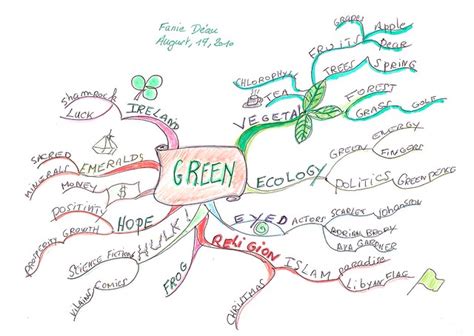 Fanie Déau
August, 19, 2010
GREEN
VEGETAL
FRUITS
Grapes
Apple
Pear
TREES
SPRING
CHLOROPHYL
TEA
FOREST
GRASS
GOLF
ECOLOGY
GREEN
ENERGY
FINGERS
POLITICS
GREENPEACE
EYED
ACTORS
SCARLET
Johansson
ADRIAN BRODY
AVA GARDNER
RELIGION
ISLAM
paradise
LIBYAN FLAG
CHRISTMAS
FROG
HULK!
SCIENCE FICTION
COMICS
HOPE
POSITIVITY
GROWTH
EMERALDS
SACRED
MINERALS
MONEY
IRELAND
Shamrock
LUCK